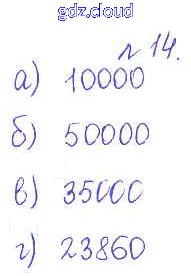 gdz.cloud
№ 14.
а) 10000
б) 50000
в) 35000
г) 23860